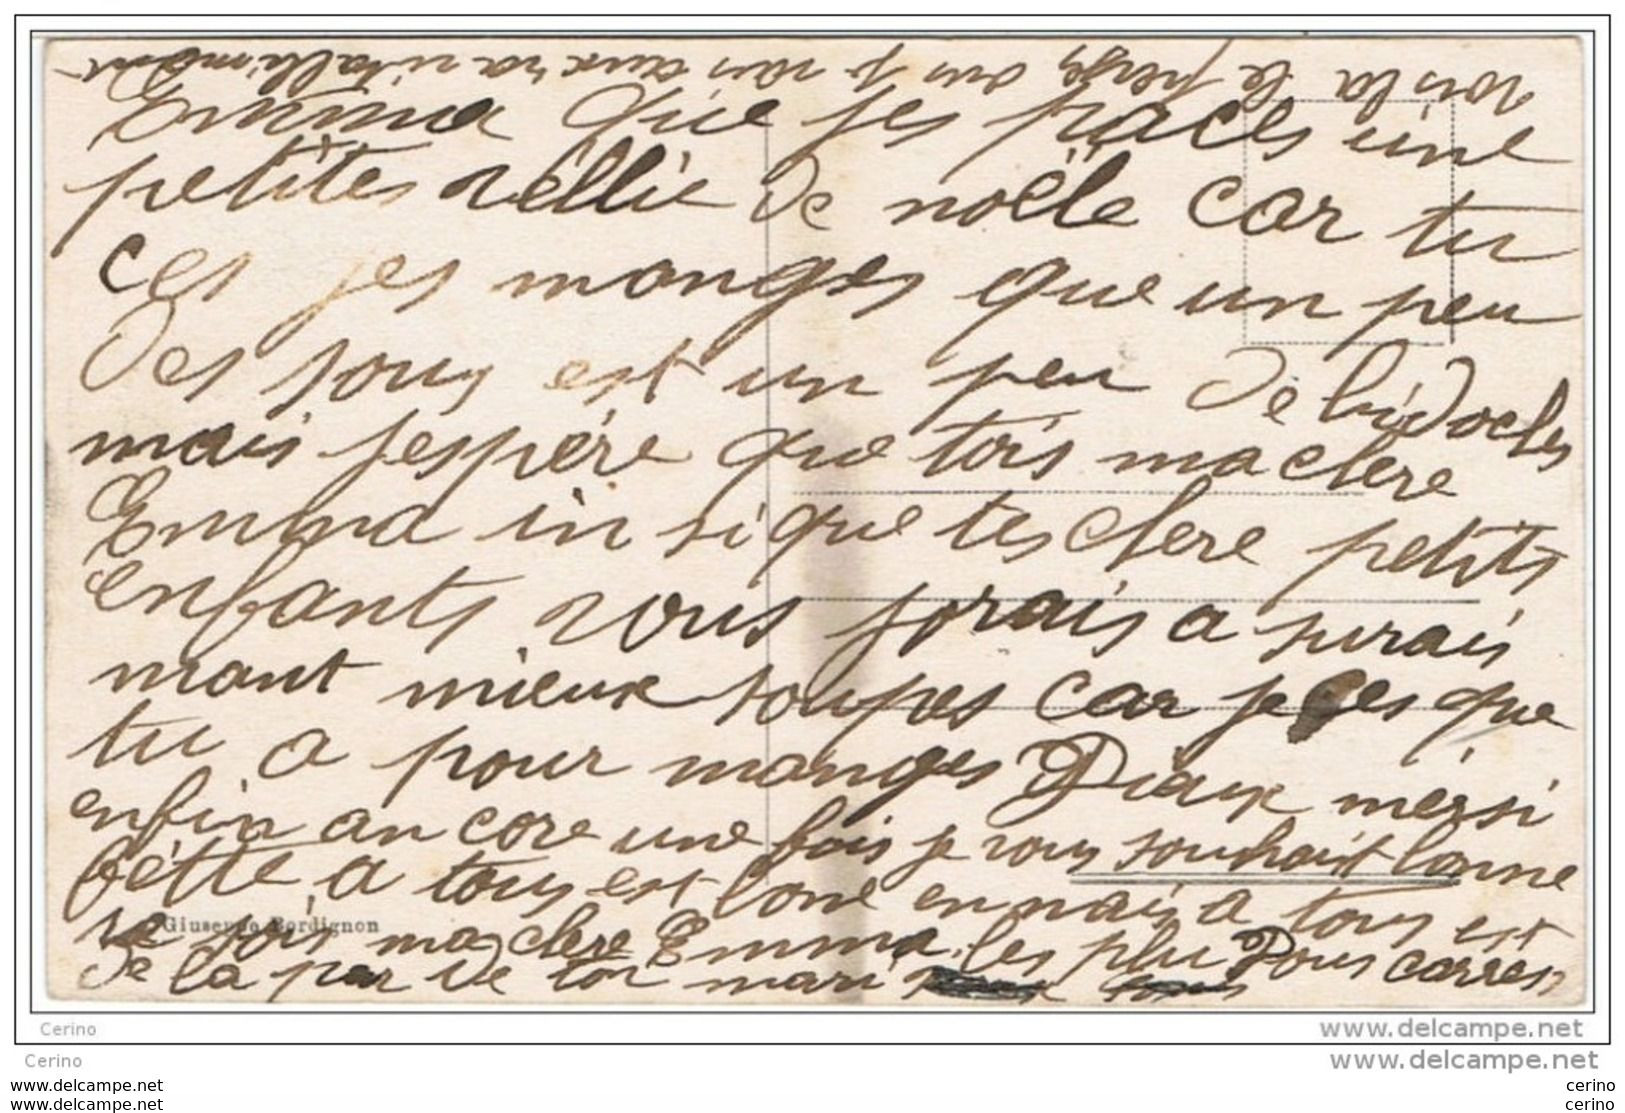 vois la le
Emma que jes paces une
petites véllie de noële car tu
ces jes manges que un peu
des sous est un peu de bidoches
mais jespére que tois ma chere
Emma in si que tes chere petits
enfants vous sorais a surais
mant mieux soupes car je ces que
tu a pour manges Diaux mersi
enfin an core une fois je vous souhait bonne
fétte a tous est bone ennais a tous est
Giuseppe Bordignon
sois ma chere Emma les plu Dous carres
de la par de ton mari
Cerino
www.delcampe.net
Cerino
www.delcampe.net
www.delcampe.net
cerino
www.delcampe.net
cerino